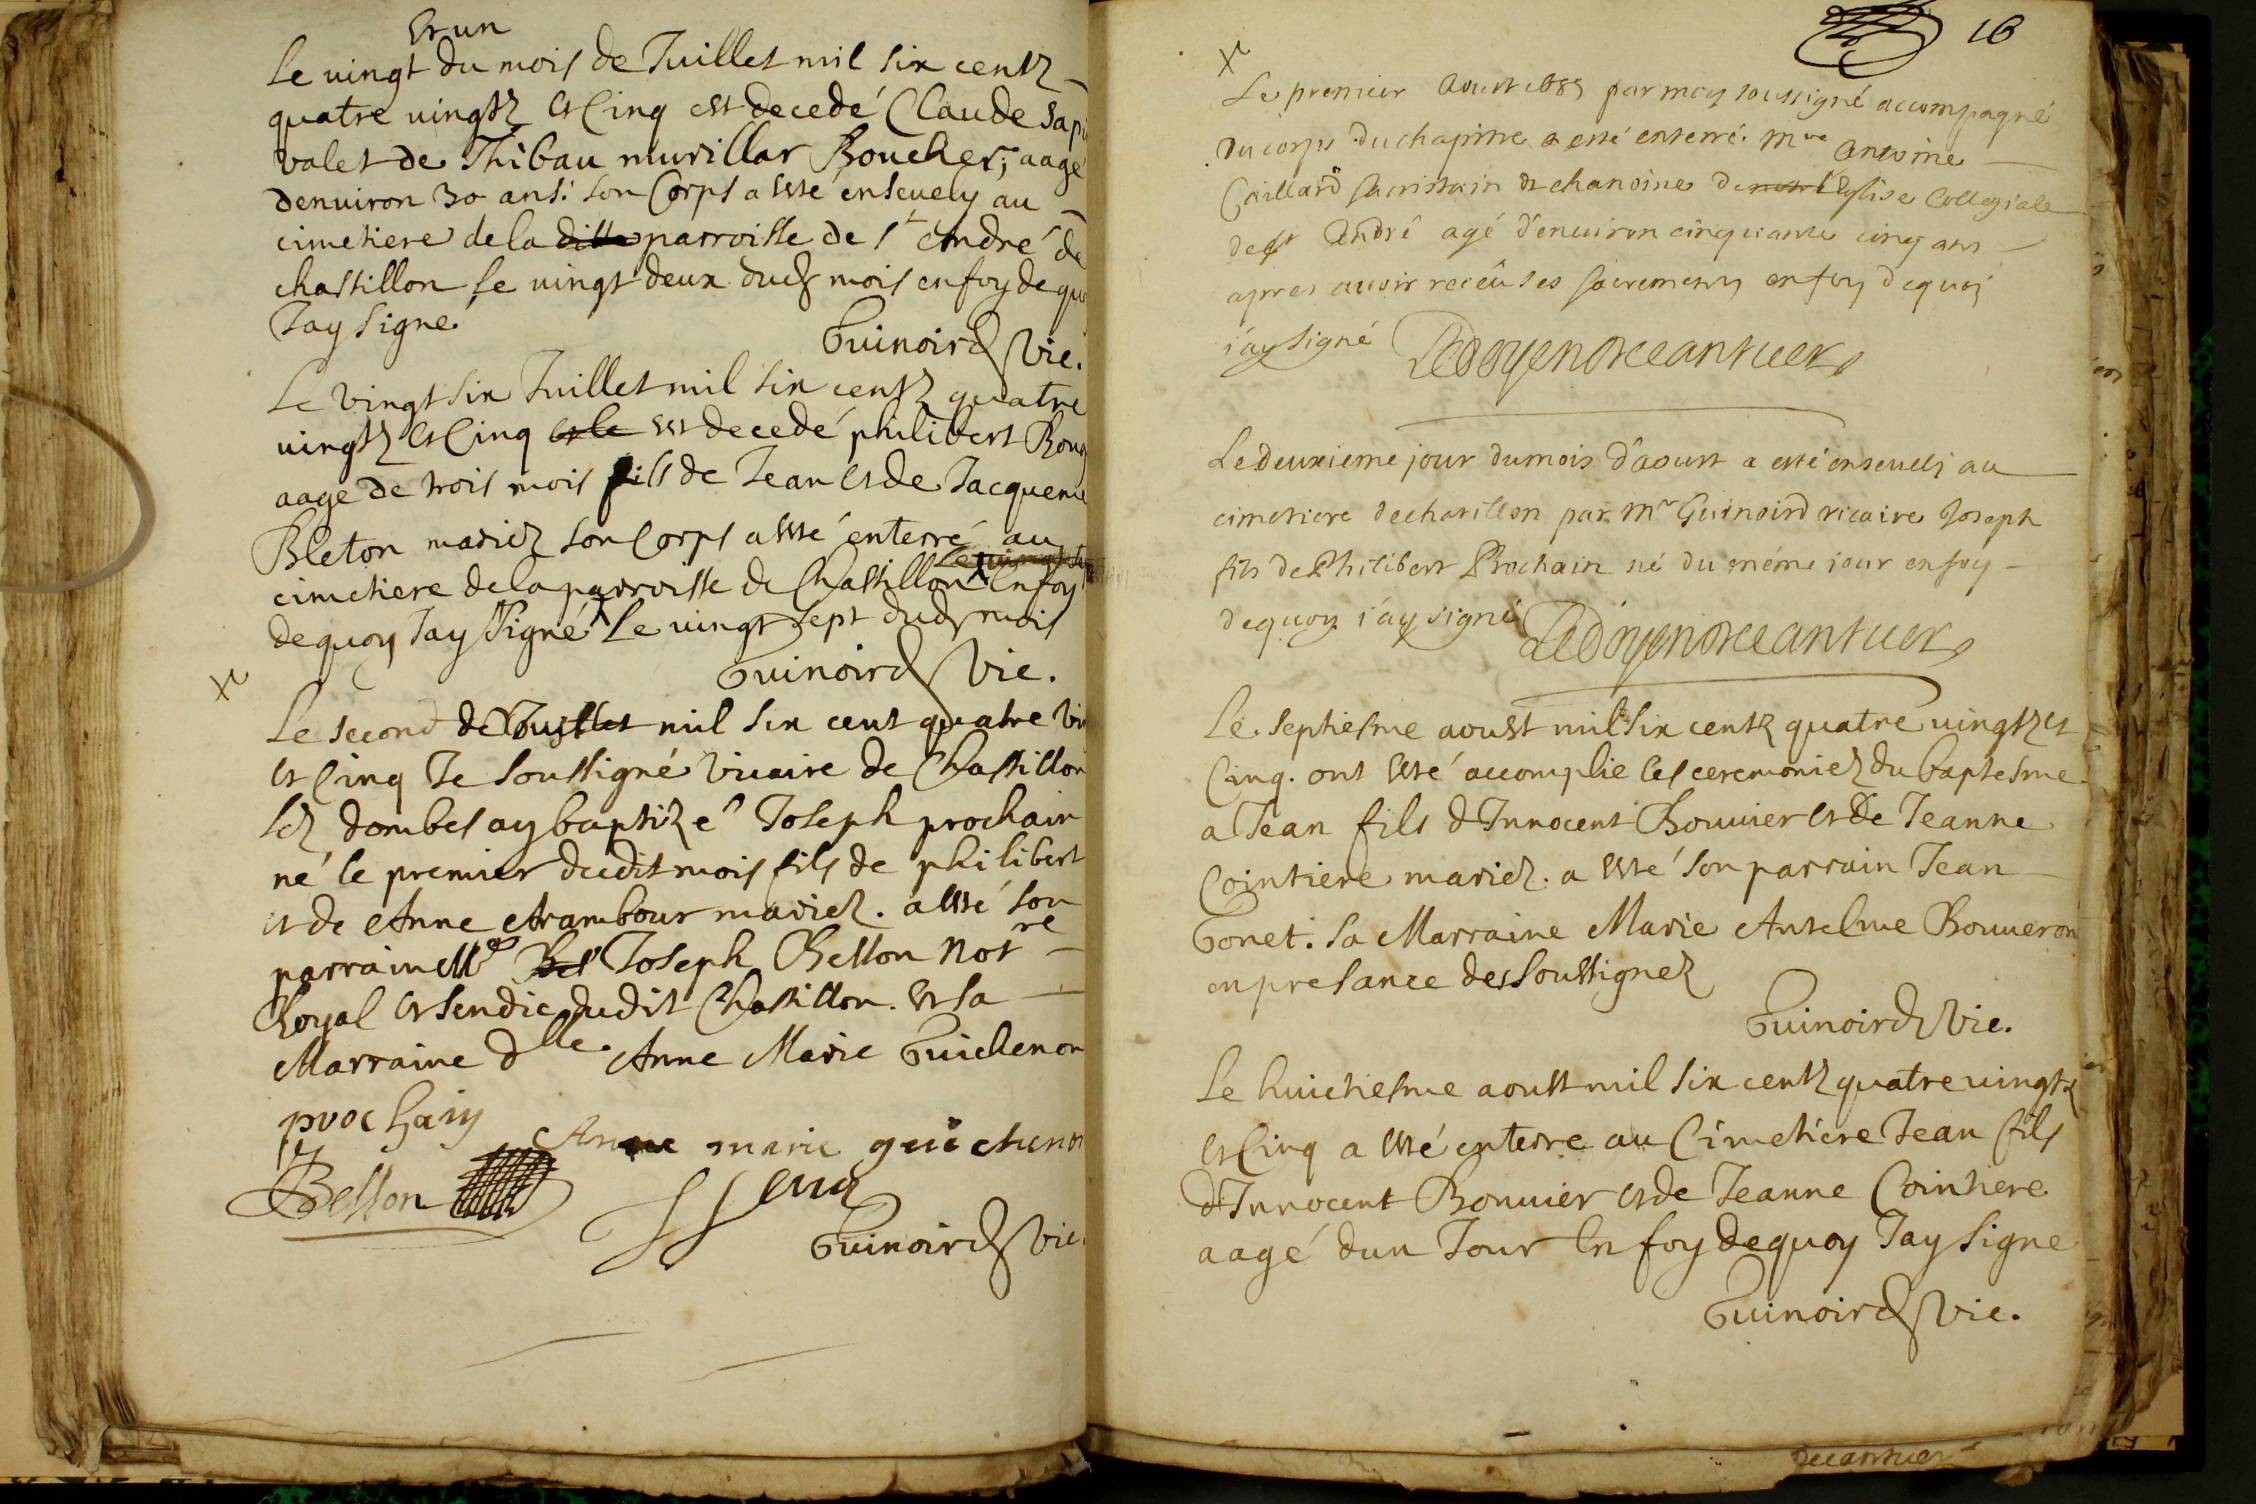 et un
Le vingt du mois de Juillet mil six centz
quatre vingtz et Cinq est decedé Claude
valet de Thibau murillar Boucher, aagé
denuiron 30 ans. son Corps a esté enseuely au
cimetiere de la ditte parroisse de st André de
chastillon le vingt deux dud mois en foy de quoy
Jay signé
Guinoird Vic.
Le vingt six Juillet mil six centz quatre
vingtz et Cinq et le est decedé philibert
aagé de trois mois fils de Jean et de Jacqueme
Bleton mariez son Corps a esté enterré au
cimetiere de la parroisse de Chastillon en foy
de quoy Jay signé Le vingt sept dud mois
Guinoird Vic.
Le second de mil six cent quatre
et Cinq Je soussigné vicaire de Chastillon
lez dombes ay baptizé Joseph prochain
né le premier dudit mois fils de philibert
et de Anne Arambour mariez. a esté son
parrain Joseph Bellon Notre
Royal et sendic dudit Chastillon. et sa
Marraine dlle Anne Marie Guichenon
prochain
Anne marie guichenon
Bellon
Guinoird Vic.
16
Le premier Aoust 1685 par moy soussigné accompagné
du corps du chapitre a esté enterré. Mre Antoine
Caillard sacristain et chanoine de notre Eglise Collegiale
de st André agé d'enuiron cinquante cinq ans
apres auoir receu ses sacrements en foy dequoj
i'ay signé Ledoyen
Le deuxieme jour du mois d'aoust a esté enseueli au
cimetiere de chatillon par Mr Guinoird vicaire Joseph
fils de Philibert Prochain né du même jour en foy
dequoy i'ay signé Ledoyen
Le septiesme aoust mil six centz quatre vingtz et
Cinq. ont esté accomplie les ceremoniez du baptesme
a Jean fils d'Innocent Bouuier et de Jeanne
Cointiere mariez. a esté son parrain Jean
Gonet. sa Marraine Marie Anselme Bouueron
en presance des soussignez
Guinoird Vic.
Le huictiesme aoust mil six centz quatre vingtz
et Cinq a esté enterre au Cimetiere Jean fils
d'Innocent Bouuier et de Jeanne Cointiere
aagé dun Jour En foy dequoy Jay signe
Guinoird Vic.